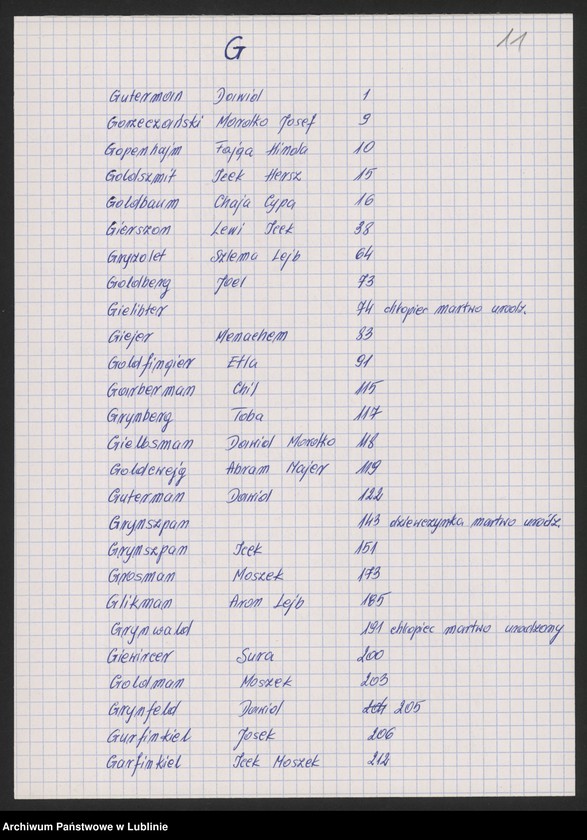 11
G
Guterman Dawid 1
Gorzeczański Mordko Josef 9
Gopenhajm Fajga Hinda 10
Goldszmit Icek Hersz 15
Goldbaum Chaja Cypa 16
Gierszon Lewi Icek 38
Gryzolet Szlema Lejb 64
Goldberg Joel 73
Gielibter 74 chłopiec martwo urodz.
Giejer Menachem 83
Goldfingier Etla 91
Garberman Chil 115
Grynberg Toba 117
Gielbsman Dawid Mordko 118
Goldcwejg Abram Majer 119
Guterman Dawid 122
Grynszpan 143 dziewczynka martwo urodz.
Grynszpan Icek 151
Grosman Moszek 173
Glikman Aron Lejb 185
Grynwald 191 chłopiec martwo urodzony
Giewircer Sura 200
Goldman Moszek 203
Grynfeld Dawid 205
Gurfinkiel Josek 206
Garfinkiel Icek Moszek 212
Archiwum Państwowe w Lublinie